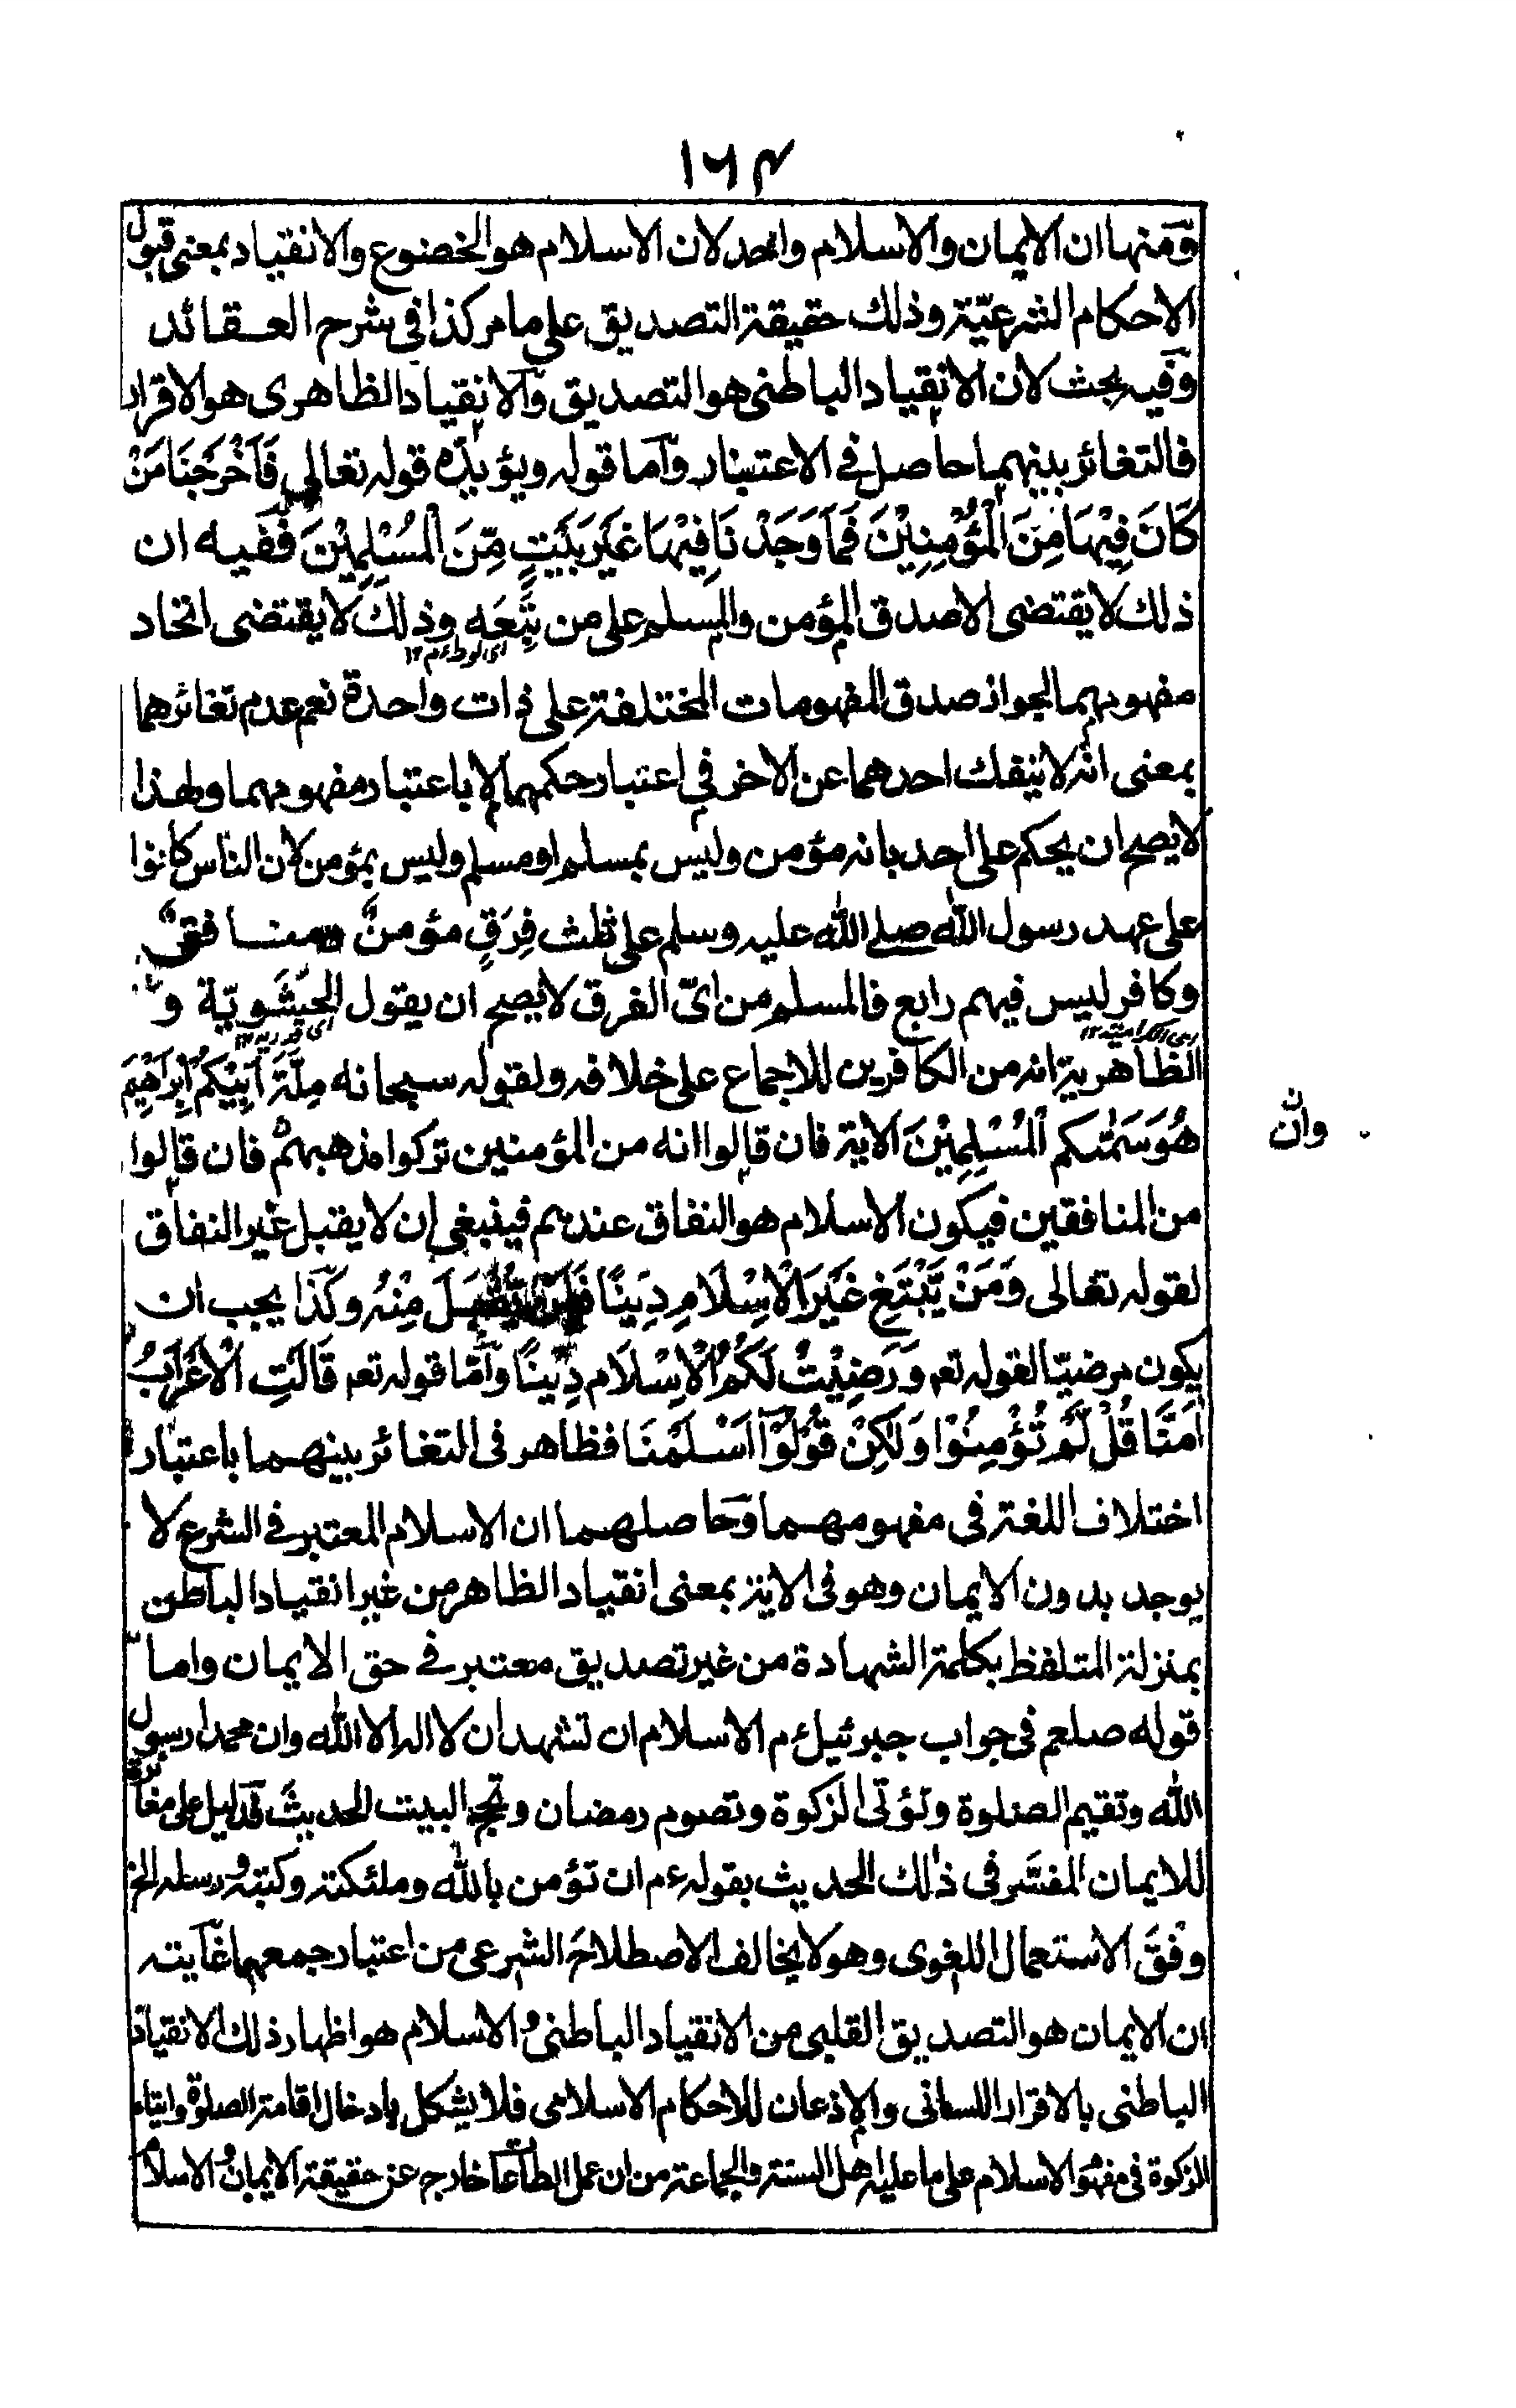 ١٦٤
ومنها ان الايمان والاسلام واحد لان الاسلام هو الخضوع والانقياد بمعنى قبول
الاحكام الشرعيّة وذلك حقيقة التصديق على ما مر كذا في شرح العقائد
وفيه بحث لان الانقياد الباطني هو التصديق والانقياد الظاهرى هو الاقرار
فالتغائر بينهما حاصل في الاعتبار واما قوله ويؤيده قوله تعالى فَاَخْرَجْنَا مَنْ
كَانَ فِيْهَا مِنَ الْمُؤْمِنِيْنَ فَمَا وَجَدْنَا فِيْهَا غَيْرَ بَيْتٍ مِّنَ الْمُسْلِمِيْنَ ففيه ان
ذلك لا يقتضى الا صدق المؤمن والمسلم على من تبعه وذلك لا يقتضى اتحاد
اى لوط ءم ١٢
مفهوميهما لجواز صدق المفهومات المختلفة على ذات واحدة نعم عدم تغائرهما
بمعنى انه لا ينفك احدهما عن الاخر في اعتبار حكمهما لا باعتبار مفهومهما ولهذا
لا يصح ان يحكم على احد بانه مؤمن وليس بمسلم او مسلم وليس بمؤمن لان الناس كانوا
على عهد رسول الله صلى الله عليه وسلم على ثلث فِرَقٍ مؤمنٌ ومنافقٌ
وكافر ليس فيهم رابع فالمسلم من اىّ الفرق لا يصح ان يقول الحشويّة و
الظاهرية انه من الكافرين للاجماع على خلافه ولقوله سبحانه مِلَّةَ اَبِيْكُمْ اِبْرَاهِيْمَ
هُوَ سَمّٰىكم الْمُسْلِمِيْنَ الاية فان قالوا انه من المؤمنين تركوا مذهبهم فان قالوا
وان
من المنافقين فيكون الاسلام هو النفاق عندهم فينبغي ان لا يقبل غير النفاق
لقوله تعالى وَمَنْ يَّبْتَغِ غَيْرَ الْاِسْلَامِ دِيْنًا فَلَنْ يُّقْبَلَ مِنْهُ وكذا يجب ان
يكون مرضيّا لقوله تعم وَرَضِيْتُ لَكُمُ الْاِسْلَام دِيْنًا وامّا قوله تعم قَالَتِ الْاَعْرَابُ
اٰمَنَّا قُلْ لَّمْ تُؤْمِنُوْا وَلٰكِنْ قُوْلُوْا اَسْلَمْنَا فظاهر فى التغائر بينهما باعتبار
اختلاف اللغة فى مفهومهما وحاصلهما ان الاسلام المعتبر في الشرع لا
يوجد بدون الايمان وهو فى الاية بمعنى انقياد الظاهر من غير انقياد الباطن
بمنزلة المتلفظ بكلمة الشهادة من غير تصديق معتبر في حق الايمان واما
قوله صلعم فى جواب جبرئيل ءم الاسلام ان تشهد ان لا اله الا الله وان محمدا رسول
الله وتقيم الصلوة وتؤتى الزكوة وتصوم رمضان وتحج البيت الحديث فدليل على مغائرة
للايمان المفسَّر فى ذلك الحديث بقوله ءم ان تؤمن بالله وملئكته وكتبه ورسله الخ
وفق الاستعمال اللغوى وهو لا يخالف الاصطلاح الشرعى من اعتبار جمعهما غايته
ان الايمان هو التصديق القلبى من الانقياد الباطنى والاسلام هو اظهار ذلك الانقياد
الباطنى بالاقرار اللسانى والاذعان للاحكام الاسلامى فلا يشكل بادخال اقامة الصلوة وايتاء
الزكوة فى مفهوم الاسلام على ما عليه اهل السنة والجماعة من ان عمل الطاعات خارج عن حقيقة الايمان والاسلام